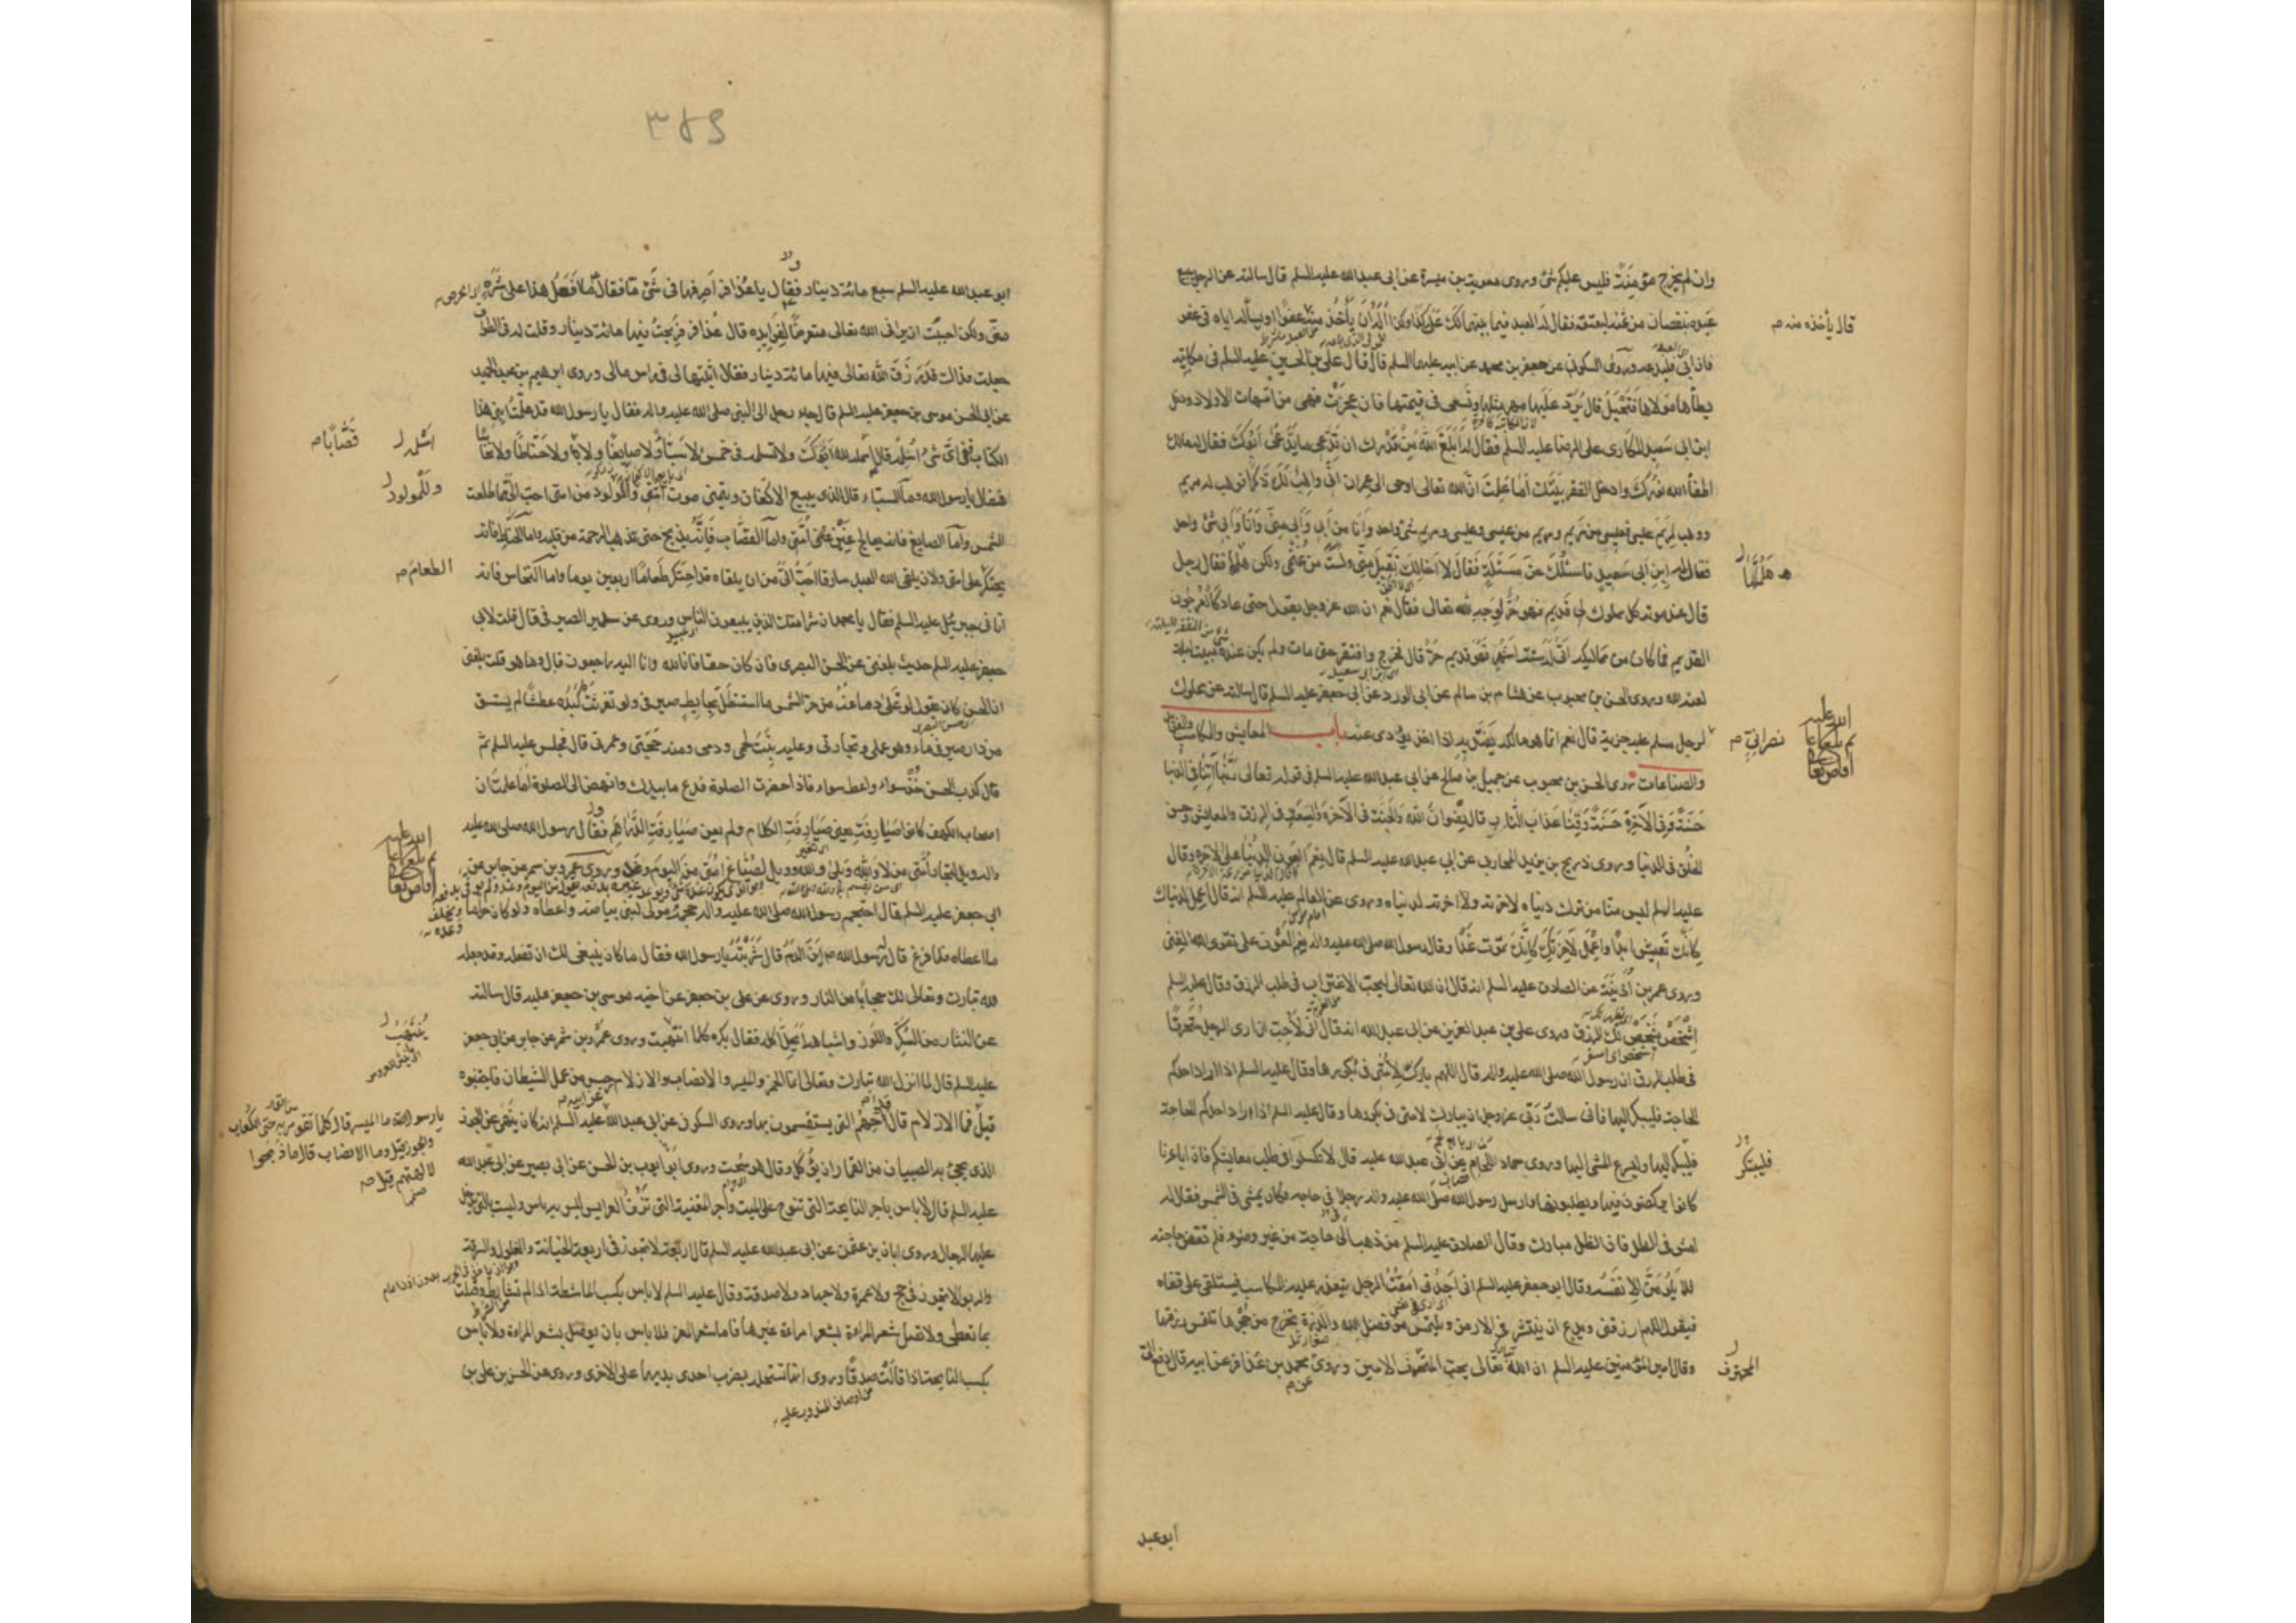 وان لم يخرج مؤمنة فليس عليكم شئ وروى معوية بن ميسرة عن ابى عبدالله عليه السلم قال سالته عن الرجل يبيع
عبده بنقصان من ثمنه ليعتق فقال له العبد فيما بينهما لك على كذا وكذا أله أن يأخذ منه عفوا او يسأله اياه في عفو
قال يأخذه منه
فان ابى فليدعه وروى السكونى عن جعفر بن محمد عن ابيه عليهما السلم قال قال على بن الحسين عليه السلم فى مكاتبة
يطأها مولاها فتحبل قال يرد عليها مهر مثلها وتسعى فى قيمتها فان عجزت فهى من امهات الاولاد ودخل
ابن ابى سعيد المكارى على الرضا عليه السلم فقال له أبلغ الله من قدرك ان تدعى ما يدعى أبوك فقال له مالك
اطفأ الله نورك وادخل الفقر بيتك أما علمت ان الله تعالى اوحى الى عمران انى واهب لك ذكرا فوهب له مريم
ووهب لمريم عيسى فعيسى من مريم ومريم من عيسى وعيسى ومريم شئ واحد وأنا من أبى وأبى منى وأنا وأبى شئ واحد
فقال له ابن ابى سعيد فاسئلك عن مسئلة فقال لا اخالك تقبل منى ولست من غنمى ولكن هلمها فقال رجل
هلمها
قال عند موته كل مملوك لى قديم فهو حر لوجه الله تعالى فقال نعم ان الله عز وجل يقول حتى عاد كالعرجون
القديم فما كان من مماليكه اتى له ستة اشهر فهو قديم حر قال فخرج وافتقر حتى مات ولم يكن عنده مبيت ليلة
لعنه الله وروى الحسن بن محبوب عن هشام بن سالم عن ابى الورد عن ابى جعفر عليه السلم قال سالته عن مملوك
لرجل مسلم عليه جزية قال نعم انما هو مالكه يفتديه اذا اخذ يؤدى عنه باب المعايش والمكاسب
نصرانى
والصناعات روى الحسن بن محبوب عن جميل بن صالح عن ابى عبدالله عليه السلم فى قوله تعالى ربنا آتنا فى الدنيا
حسنة وفى الآخرة حسنة وقنا عذاب النار قال رضوان الله والجنة فى الآخرة والسعة فى الرزق والمعايش وحسن
الخلق فى الدنيا وروى ذريح بن يزيد المحاربى عن ابى عبدالله عليه السلم قال نعم العون الدنيا على الآخرة وقال
عليه السلم ليس منا من ترك دنياه لاخرته ولا آخرته لدنياه وروى عن العالم عليه السلم انه قال اعمل لدنياك
كانك تعيش ابدا واعمل لآخرتك كانك تموت غدا وقال رسول الله صلى الله عليه واله نعم العون على تقوى الله الغنى
وروى عمر بن أذينة عن الصادق عليه السلم انه قال ان الله تعالى ليحب الاغتراب فى طلب الرزق وقال عليه السلم
اشخص يشخص لك الرزق وروى على بن عبد العزيز عن ابى عبدالله انه قال انى لأحب ان ارى الرجل متحرفا
فى طلب الرزق ان رسول الله صلى الله عليه واله قال اللهم بارك لأمتى فى بكورها وقال عليه السلم اذا اراد احدكم
الحاجة فليبكر اليها فانى سالت ربى عز وجل ان يبارك لامتى فى بكورها وقال عليه السلم اذا اراد احدكم الحاجة
فليبكر اليها وليسرع المشى اليها وروى حماد اللحام عن ابى عبدالله عليه قال لا تكسلوا فى طلب معايشكم فان اباءنا
فليبتكر
كانوا يركضون فيها ويطلبونها وارسل رسول الله صلى الله عليه واله رجلا فى حاجة فكان يمشى فى الشمس فقال له
امش فى الظل فان الظل مبارك وقال الصادق عليه السلم من ذهب فى حاجة من غير وضوء فلم تقض حاجته
فلا يلومن الا نفسه وقال ابو جعفر عليه السلم انى اجدنى امقت الرجل يتعذر عليه المكاسب فيستلقى على قفاه
فيقول اللهم ارزقنى ويدع ان ينتشر فى الارض ويلتمس من فضل الله والذرة تخرج من جحرها تلتمس رزقها
وقال امير المؤمنين عليه السلم ان الله تعالى يحب المتحرف الامين وروى محمد بن عذافر عن ابيه قال دفع الى
المحترف
ابو عبد
٣٨٩
ابو عبدالله عليه السلم سبع مائة دينار فقال يا عذافر اصرفها فى شئ ما فقال ما افعل هذا على شره
منى ولكن احببت ان يرانى الله تعالى متعرضا لفوايده قال عذافر فربحت فيها مائة دينار وقلت له فى الطواف
جعلت فداك قد رزق الله تعالى فيها مائة دينار فقال اثبتها لى فى راس مالى وروى ابرهيم بن عبد الحميد
عن ابى الحسن موسى بن جعفر عليه السلم قال جاء رجل الى النبى صلى الله عليه واله فقال يا رسول الله قد علمت ابنى هذا
الكتاب ففى اى شئ اسلمه قال اسلمه لله ابوك ولا تسلمه فى خمس لا سباء ولا صايغا ولا حناطا ولا نخاسا
اسلمه
قصابا
فقال يا رسول الله وما السباء قال الذى يبيع الاكفان ويتمنى موت امتى وللمولود من امتى احب الى مما طلعت
وللمولود
الشمس وأما الصايغ فانه يعالج غبن امتى واما القصاب فانه يذبح حتى تذهب الرحمة من قلبه واما الحناط فانه
يحتكر على امتى ولان يلقى الله العبد سارقا احب الى من ان يلقاه قد احتكر طعاما اربعين يوما واما النخاس فانه
الطعام
اتانى جبرئيل عليه السلم فقال يا محمد ان شر امتك الذين يبيعون الناس وروى عن سدير الصيرفى قال قلت لابى
جعفر عليه السلم حديث بلغنى عن الحسن البصرى فان كان حقا فانا لله وانا اليه راجعون قال وما هو قلت بلغنى
ان الحسن كان يقول لو غلى دماغه من حر الشمس ما استظل بحايط صيرفى ولو تفرثت كبده عطشا لم يستسق
من دار صيرفى ماء وهو عملى وتجارتى وعليه نبت لحمى ودمى ومنه حجتى وعمرتى قال فجلس عليه السلم ثم
قال كذب الحسن خذ سواء واعط سواء فاذا حضرت الصلوة فدع ما بيدك وانهض الى الصلوة اما علمت ان
اصحاب الكهف كانوا صيارفة يعنى صيارفة الكلام ولم يعن صيارفة الدراهم فقال رسول الله صلى الله عليه
واله ويل لتجار امتى من لا والله وبلى والله وويل لصناع امتى من اليوم وغد وروى عمرو بن شمر عن جابر عن
ابى جعفر عليه السلم قال احتجم رسول الله صلى الله عليه واله حجمه مولى لبنى بياضة واعطاه ولو كان حراما
ما اعطاه فلما فرغ قال له رسول الله اين الدم قال شربته يا رسول الله فقال ما كان ينبغى لك ان تفعل وقد جعله
لله تبارك وتعالى لك حجابا من النار وروى عن على بن جعفر عن اخيه موسى بن جعفر عليه قال سالته
عن النثار من السكر واللوز واشباهه أيحل اكله فقال يكره كلما انتهبت وروى عمرو بن شمر عن جابر عن ابى جعفر
عليه السلم قال لما انزل الله تبارك وتعالى انما الخمر والميسر والانصاب والازلام رجس من عمل الشيطان فاجتنبوه
قيل يا رسول الله ما الميسر قال كلما تقومر به حتى الكعاب
والجوز قيل وما الانصاب قال ما ذبحوا
لآلهتهم قيل
قيل فما الازلام قال قداحهم التى يستقسمون بها وروى السكونى عن ابى عبدالله عليه السلم انه كان ينهى عن الجوز
الذى يجئ به الصبيان من القمار ان يؤكل وقال هو سحت وروى ابو ايوب بن الحسن عن ابى بصير عن ابى عبدالله
عليه السلم قال لا باس باجر النايحة التى تنوح على الميت واجر المغنية التى تزف العرايس ليس به باس وليست بالتى يدخل
عليها الرجال وروى ابان بن عثمن عن ابى عبدالله عليه السلم قال اربعة لا تجوز فى اربعة الخيانة والغلول والسرقة
والربوا لا تجوز فى حج ولا عمرة ولا جهاد ولا صدقة وقال عليه السلم لا باس بكسب الماشطة اذا لم تشارط وقبلت
بما تعطى ولا تصل شعر المراءة بشعر امراءة غيرها فاما شعر المعز فلا باس بان يوصل بشعر المراءة ولا باس
بكسب النايحة اذا قالت صدقا وروى انها تستحله بضرب احدى يديها على الاخرى وروى عن الحسن بن على بن